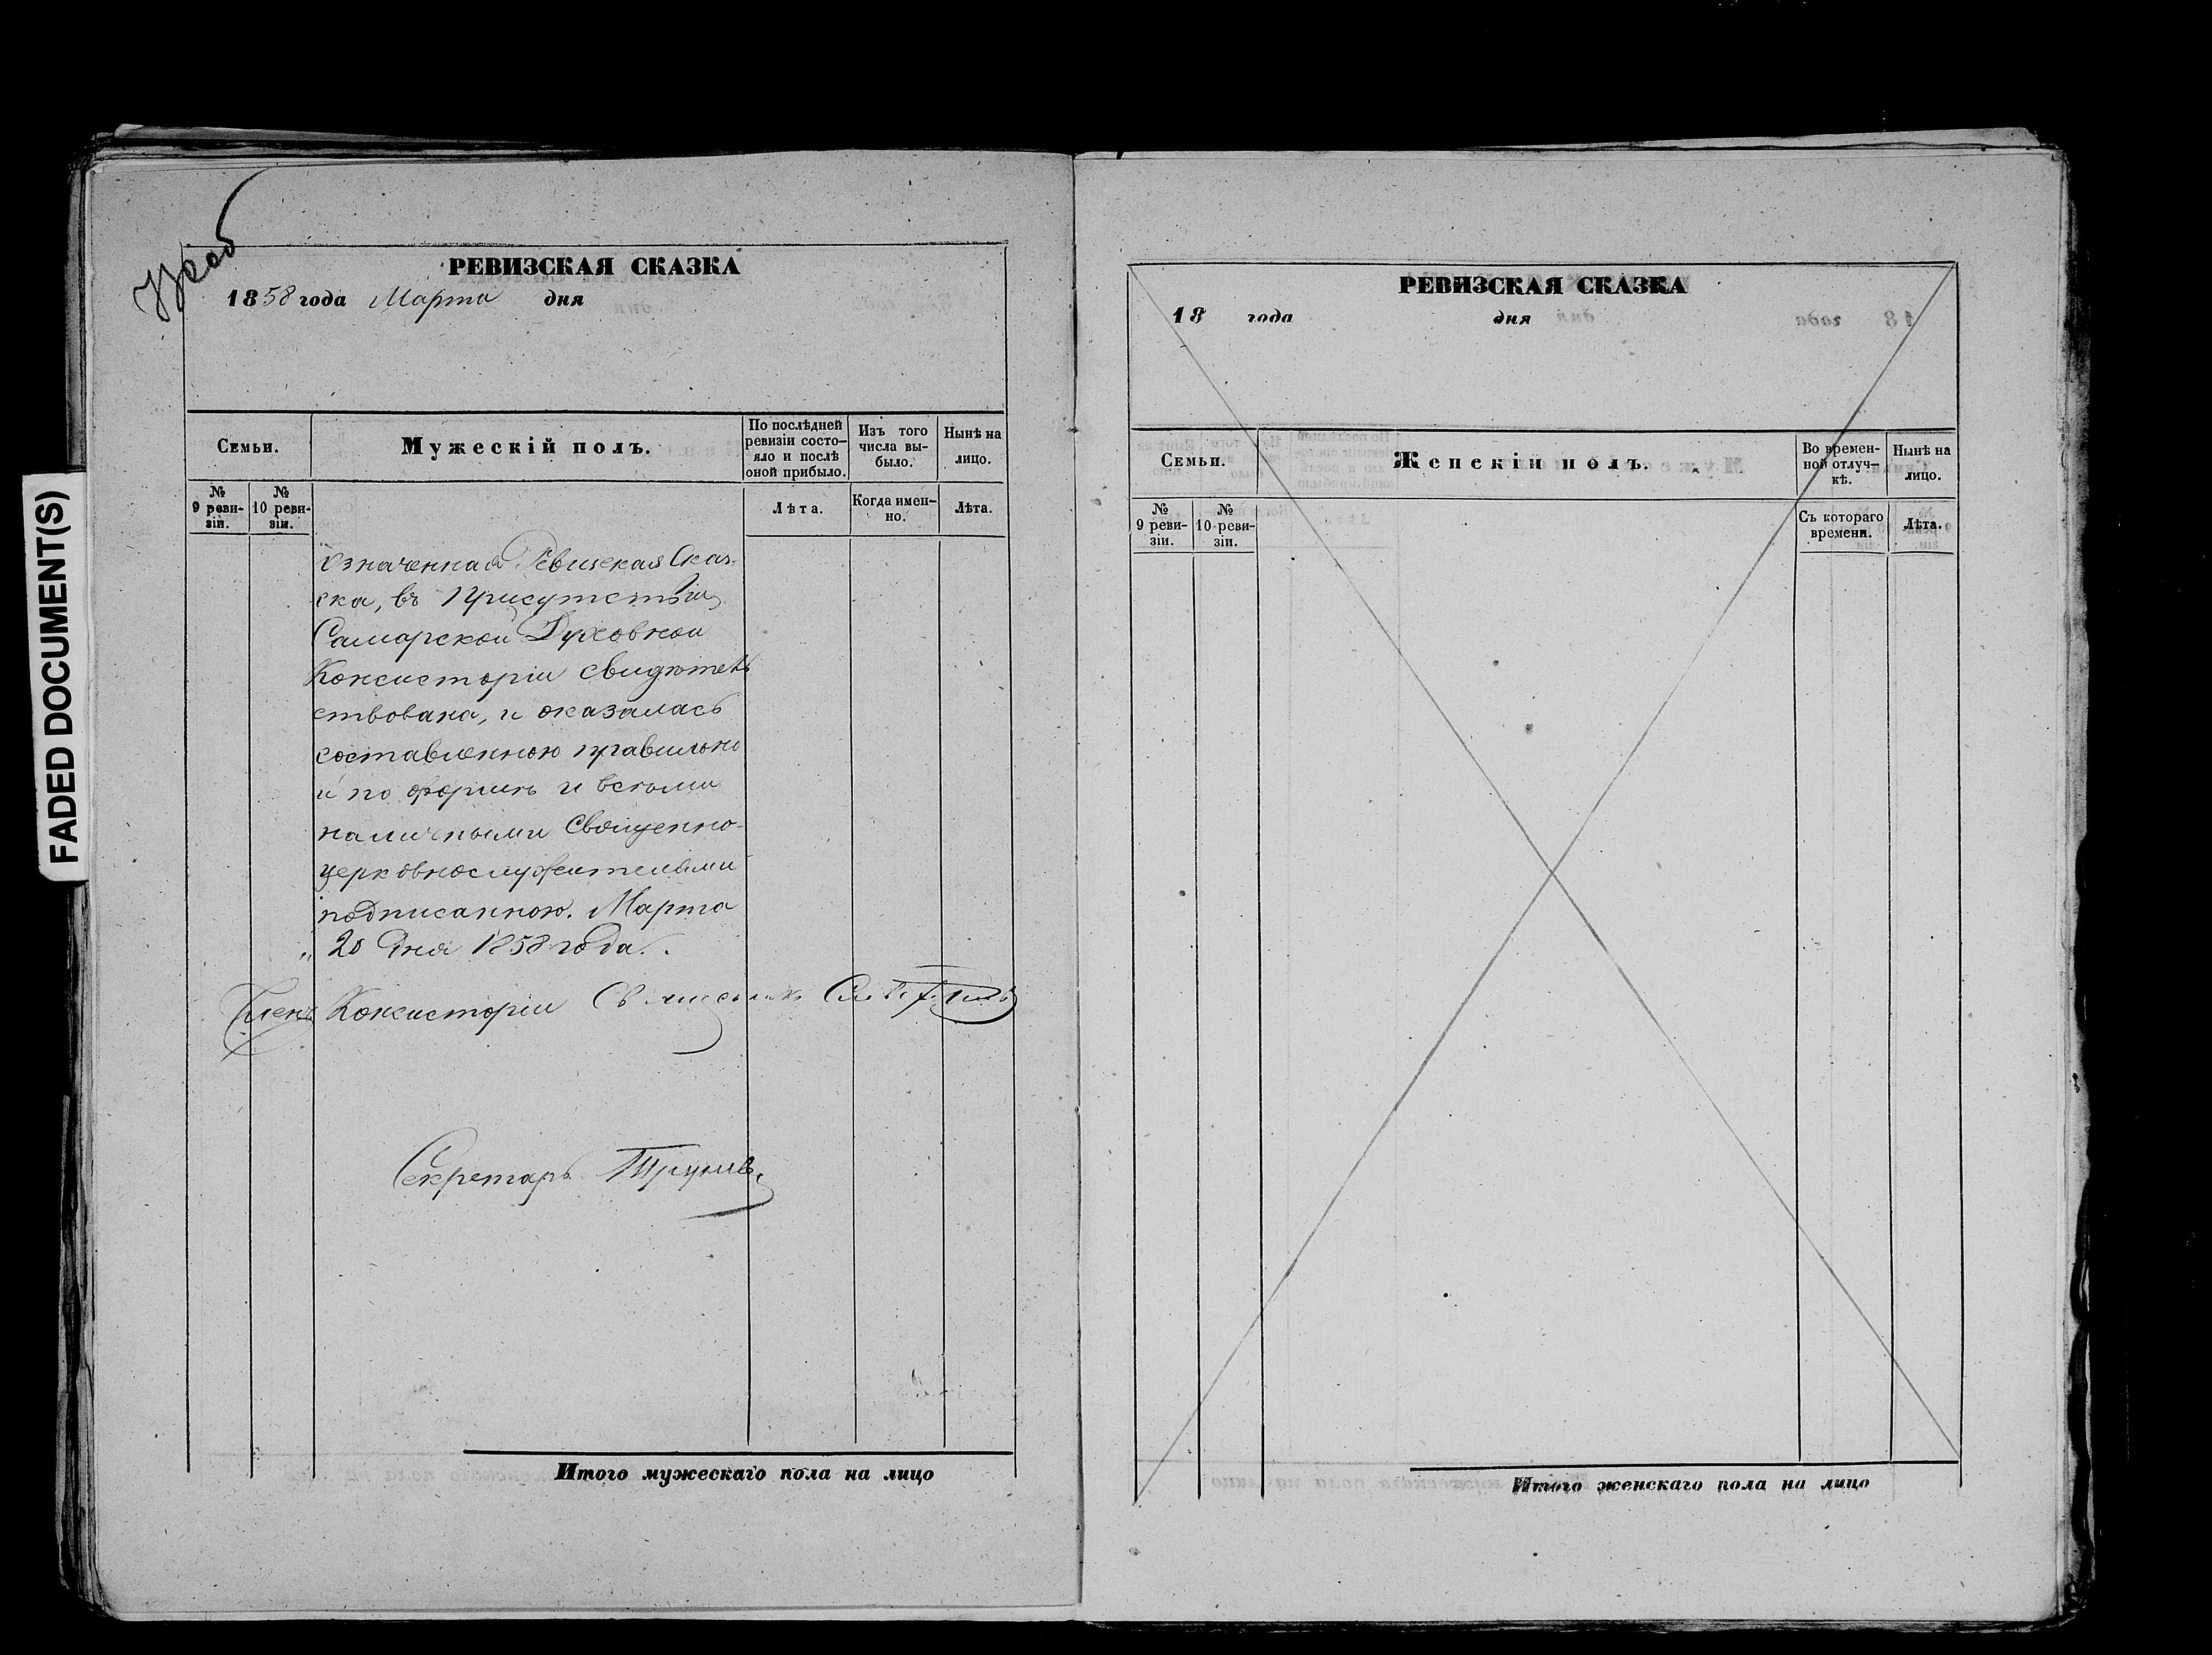 FADED DOCUMENT(S)
РЕВИЗСКАЯ СКАЗКА
1858 года Марта дня
Семьи.
Мужескій полъ.
По послѣдней ревизіи состо-
яло и послѣ оной прибыло.
Изъ того числа вы-
было.
Нынѣ на лицо.
№ 9 реви-
зіи.
№ 10 реви-
зіи.
Лѣта.
Когда имен-
но.
Лѣта.
Означенная Ревизская Сказ-
ска, въ Присутствіи
Самарской Духовной
Консисторіи свидѣтель
ствована, и оказалась
составленною правильно
и по формѣ и всѣми
наличными Священно-
церковнослужителями
подписанною. Марта
„ 20 дня 1858 года.
Членъ Консисторіи
Секретарь
Итого мужескаго пола на лицо
РЕВИЗСКАЯ СКАЗКА
18 года дня
Семьи.
Женскій полъ.
Во времен-
ной отлуч-
кѣ.
Нынѣ на лицо.
№ 9 реви-
зіи.
№ 10 реви-
зіи.
Съ котораго времени.
Лѣта.
Итого женскаго пола на лицо